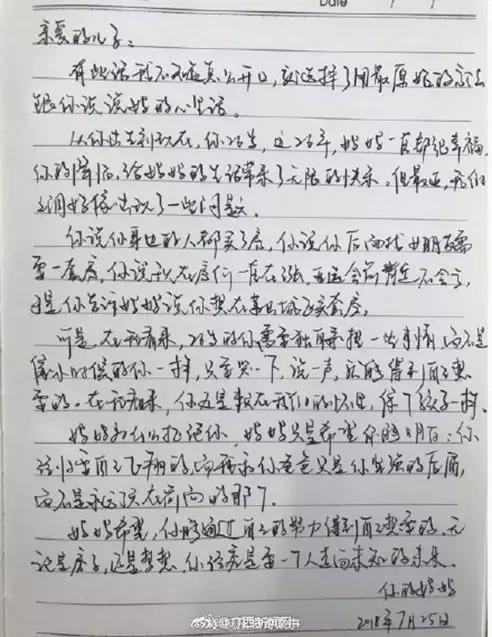 Date / /
亲爱的儿子：
有些话我不知道怎么开口，就选择了用最原始的方法
跟你说说妈妈的心里话。
从你出生到现在，你26岁，这26年，妈妈一直都很幸福，
你的降临，给妈妈的生活带来了无限的快乐。但最近，我们
之间好像出现了一些问题。
你说你身边的人都买了房，你说你后面找女朋友需
要一套房，你说现在房价一直在涨，
于是你告诉妈妈说你想在某城区买套房。
可是，在我看来，26岁的你需要独自承担一些事情，而不是
像小时候的你一样，只要哭一下，说一声，就能得到自己想
要的。在我看来，你还是躲在我们的怀里，像个孩子一样。
妈妈为什么拒绝你，妈妈只是希望你能明白：你
是要自己飞翔的，而我和你爸爸只是你坚强的后盾，
而不是永远顶在前面的那个。
妈妈希望，你能通过自己的努力得到自己想要的，无
论是房子，还是梦想，你终究是要一个人走向未知的未来。
你的妈妈
2018年7月25日
@广西新闻网